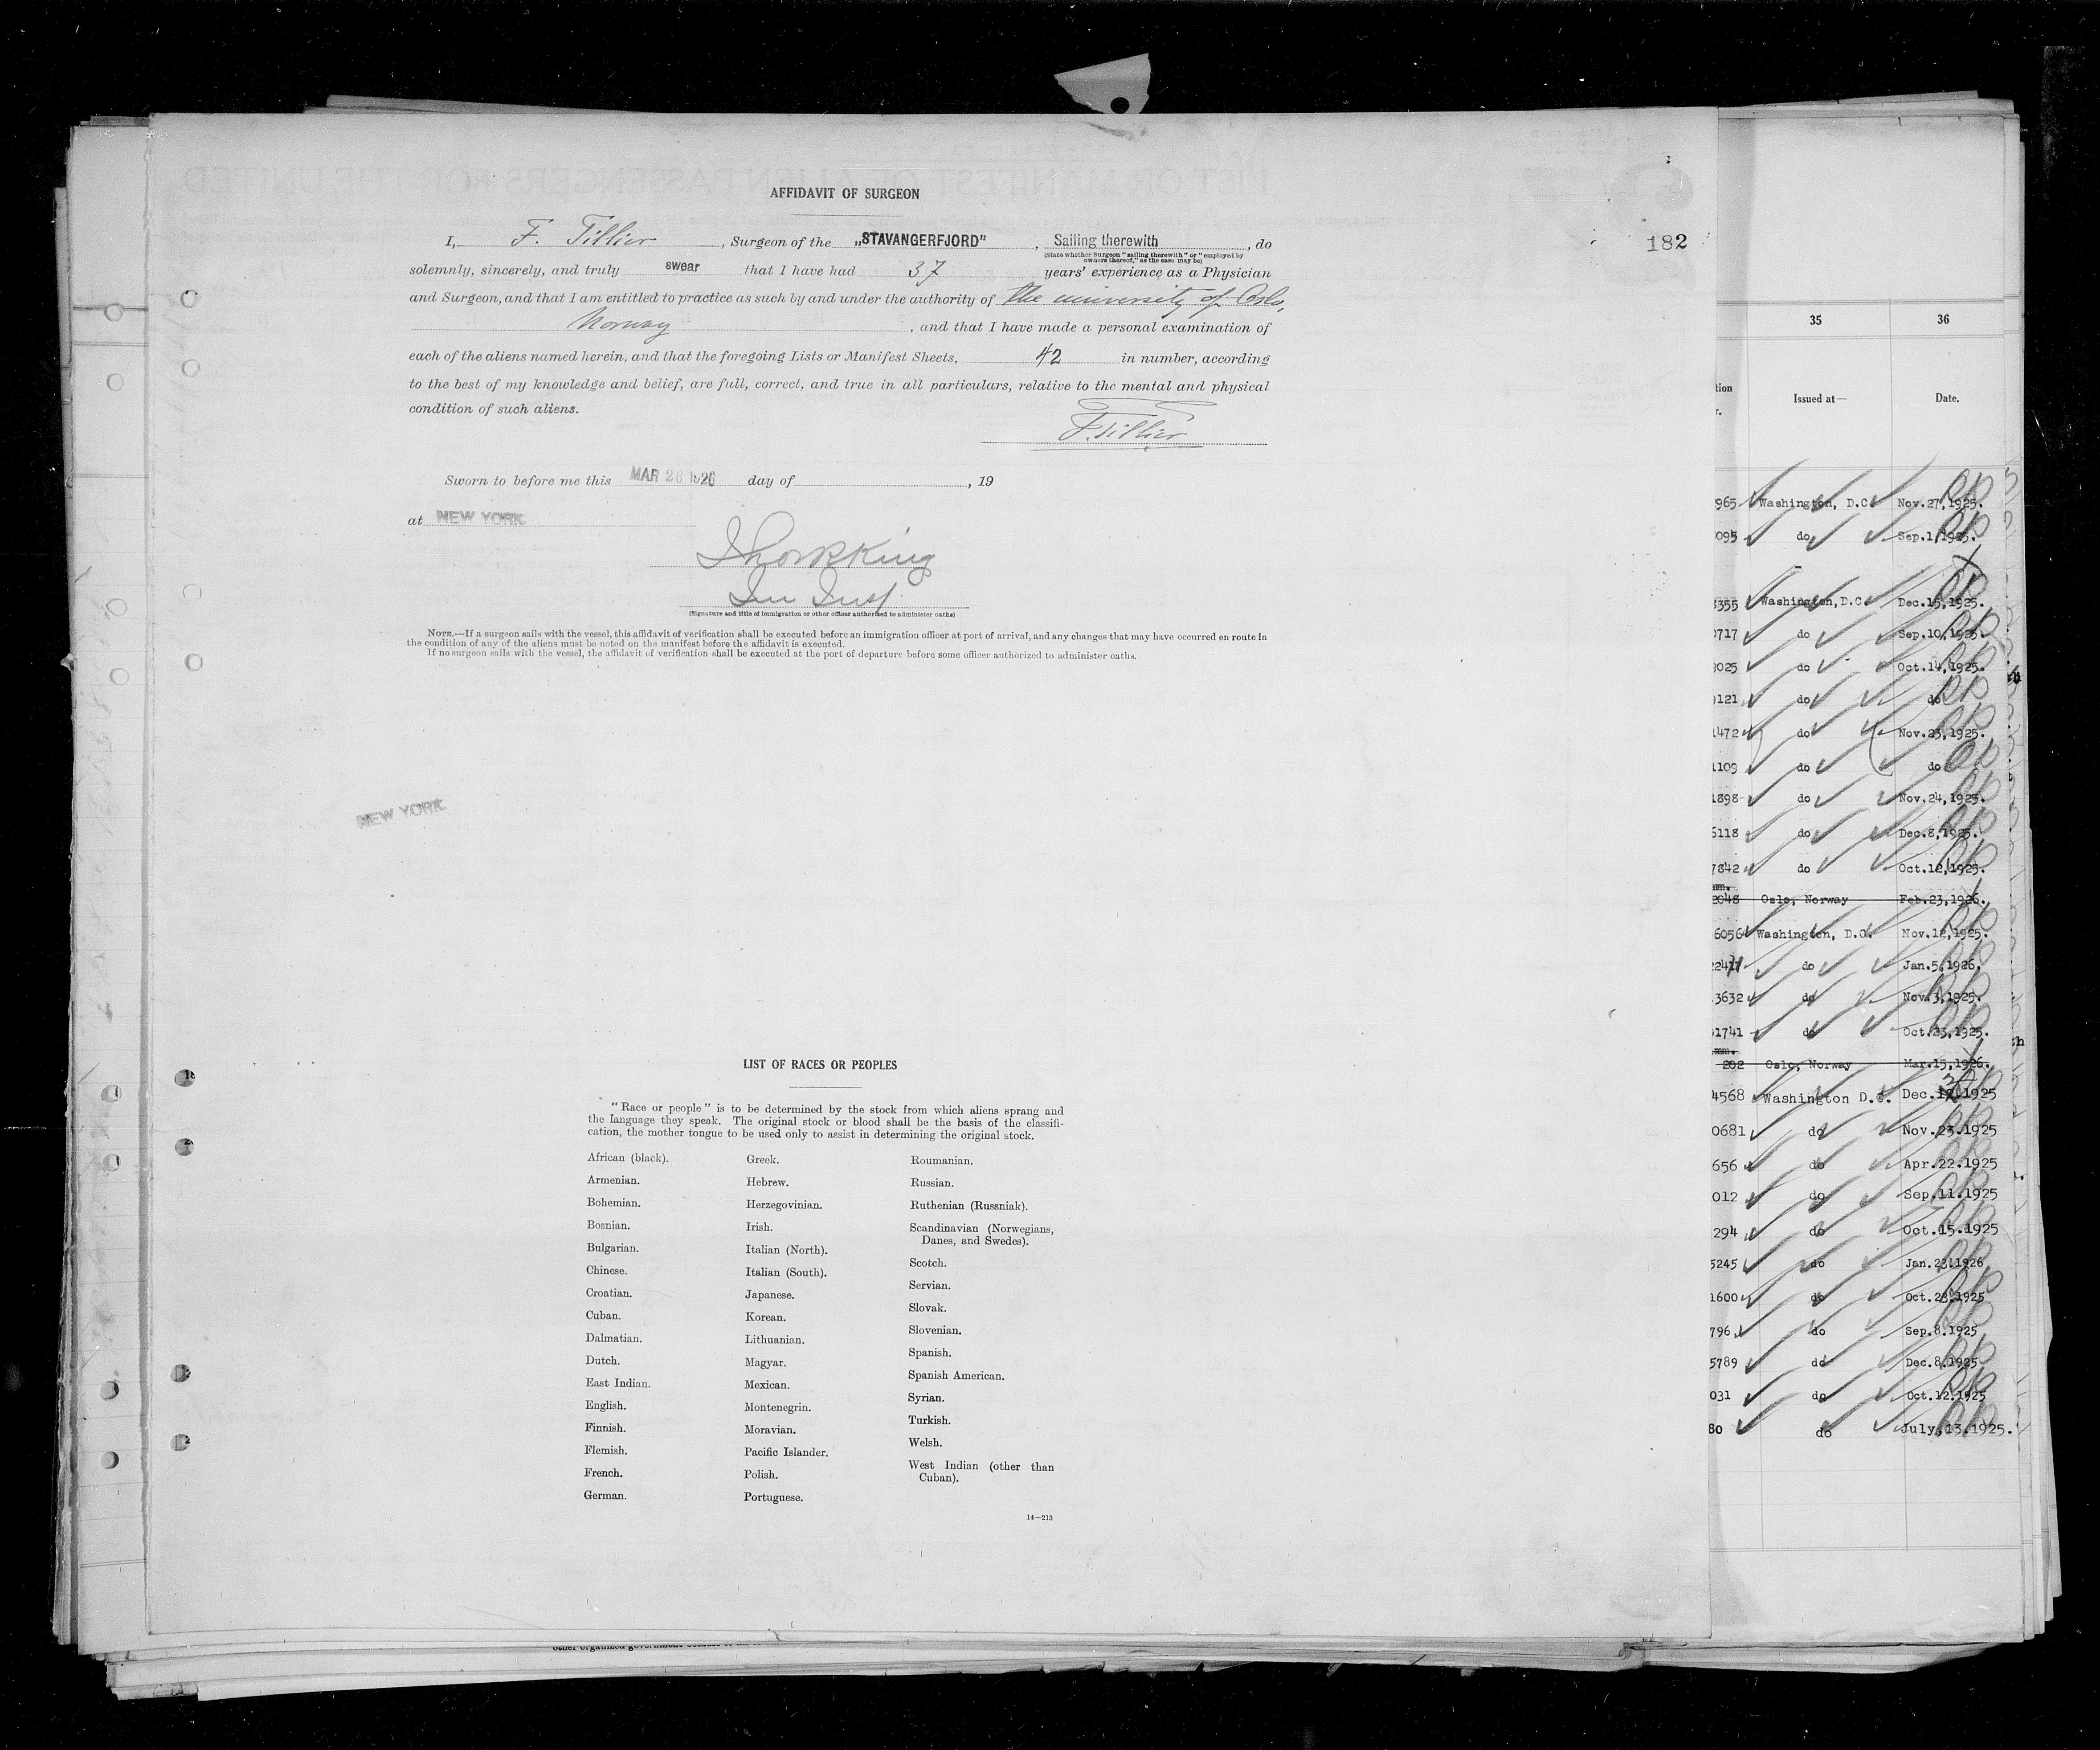 AFFIDAVIT OF SURGEON
I, F. Tillier, Surgeon of the „STAVANGERFJORD", Sailing therewith, do
(State whether Surgeon "sailing therewith" or "employed by
owners thereof," as the case may be)
182
solemnly, sincerely, and truly swear that I have had 37 years' experience as a Physician
and Surgeon, and that I am entitled to practice as such by and under the authority of the university of Oslo,
Norway, and that I have made a personal examination of
each of the aliens named herein, and that the foregoing Lists or Manifest Sheets, 42 in number, according
to the best of my knowledge and belief, are full, correct, and true in all particulars, relative to the mental and physical
condition of such aliens.
F. Tillier
Sworn to before me this MAR 26 1926 day of , 19
at NEW YORK
Im Insp.
(Signature and title of immigration or other officer authorized to administer oaths)
NOTE.—If a surgeon sails with the vessel, this affidavit of verification shall be executed before an immigration officer at port of arrival, and any changes that may have occurred en route in
the condition of any of the aliens must be noted on the manifest before the affidavit is executed.
If no surgeon sails with the vessel, the affidavit of verification shall be executed at the port of departure before some officer authorized to administer oaths.
NEW YORK
LIST OF RACES OR PEOPLES
"Race or people" is to be determined by the stock from which aliens sprang and
the language they speak. The original stock or blood shall be the basis of the classifi-
cation, the mother tongue to be used only to assist in determining the original stock.
African (black).
Armenian.
Bohemian.
Bosnian.
Bulgarian.
Chinese.
Croatian.
Cuban.
Dalmatian.
Dutch.
East Indian.
English.
Finnish.
Flemish.
French.
German.
Greek.
Hebrew.
Herzegovinian.
Irish.
Italian (North).
Italian (South).
Japanese.
Korean.
Lithuanian.
Magyar.
Mexican.
Montenegrin.
Moravian.
Pacific Islander.
Polish.
Portuguese.
Roumanian.
Russian.
Ruthenian (Russniak).
Scandinavian (Norwegians,
Danes, and Swedes).
Scotch.
Servian.
Slovak.
Slovenian.
Spanish.
Spanish American.
Syrian.
Turkish.
Welsh.
West Indian (other than
Cuban).
14—213
35 36
Issued at— Date.
965 Washington, D.C. Nov.27,1925.
095 do Sep.1,1925.
355 Washington,D.C. Dec.15,1925.
0717 do Sep.10,1925.
025 do Oct.14,1925.
121 do do
1472 do Nov.23,1925.
1109 do do
1898 do Nov.24,1925.
6118 do Dec.8,1925.
7842 do Oct.12,1925.
2048 Oslo, Norway Feb.23,1926.
6056 Washington, D.C. Nov.12,1925.
do Jan.5,1926.
3632 do Nov.3,1925.
1741 do Oct.23,1925.
202 Oslo, Norway Mar.15,1926.
4568 Washington D.C. Dec. 1925
0681 do Nov.23.1925
656 do Apr.22.1925
012 do Sep.11.1925
294 do Oct.15.1925
5245 do Jan.23.1926
1600 do Oct.23.1925
796 do Sep.8.1925
5789 do Dec.8.1925
031 do Oct.12.1925
80 do July.13.1925.